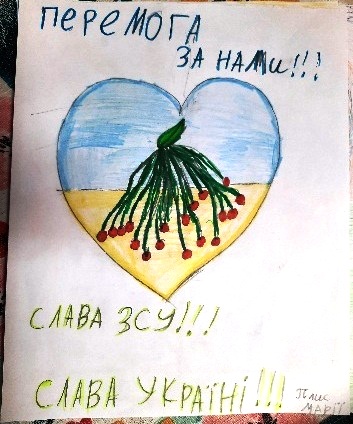 ПЕРЕМОГА
ЗА НАМИ!!!
СЛАВА ЗСУ!!!
СЛАВА УКРАЇНІ!!!
Плис
МАРІЇ